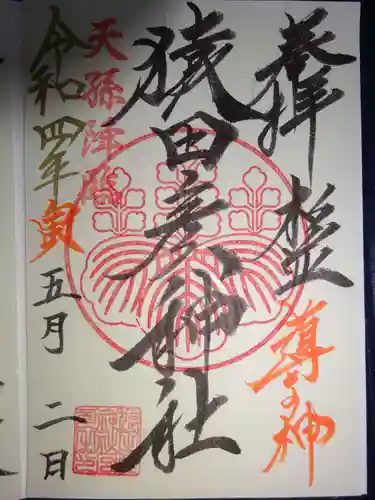 奉拝
導きの神
猿田彦神社
天孫降臨
令和四年寅
五月二日